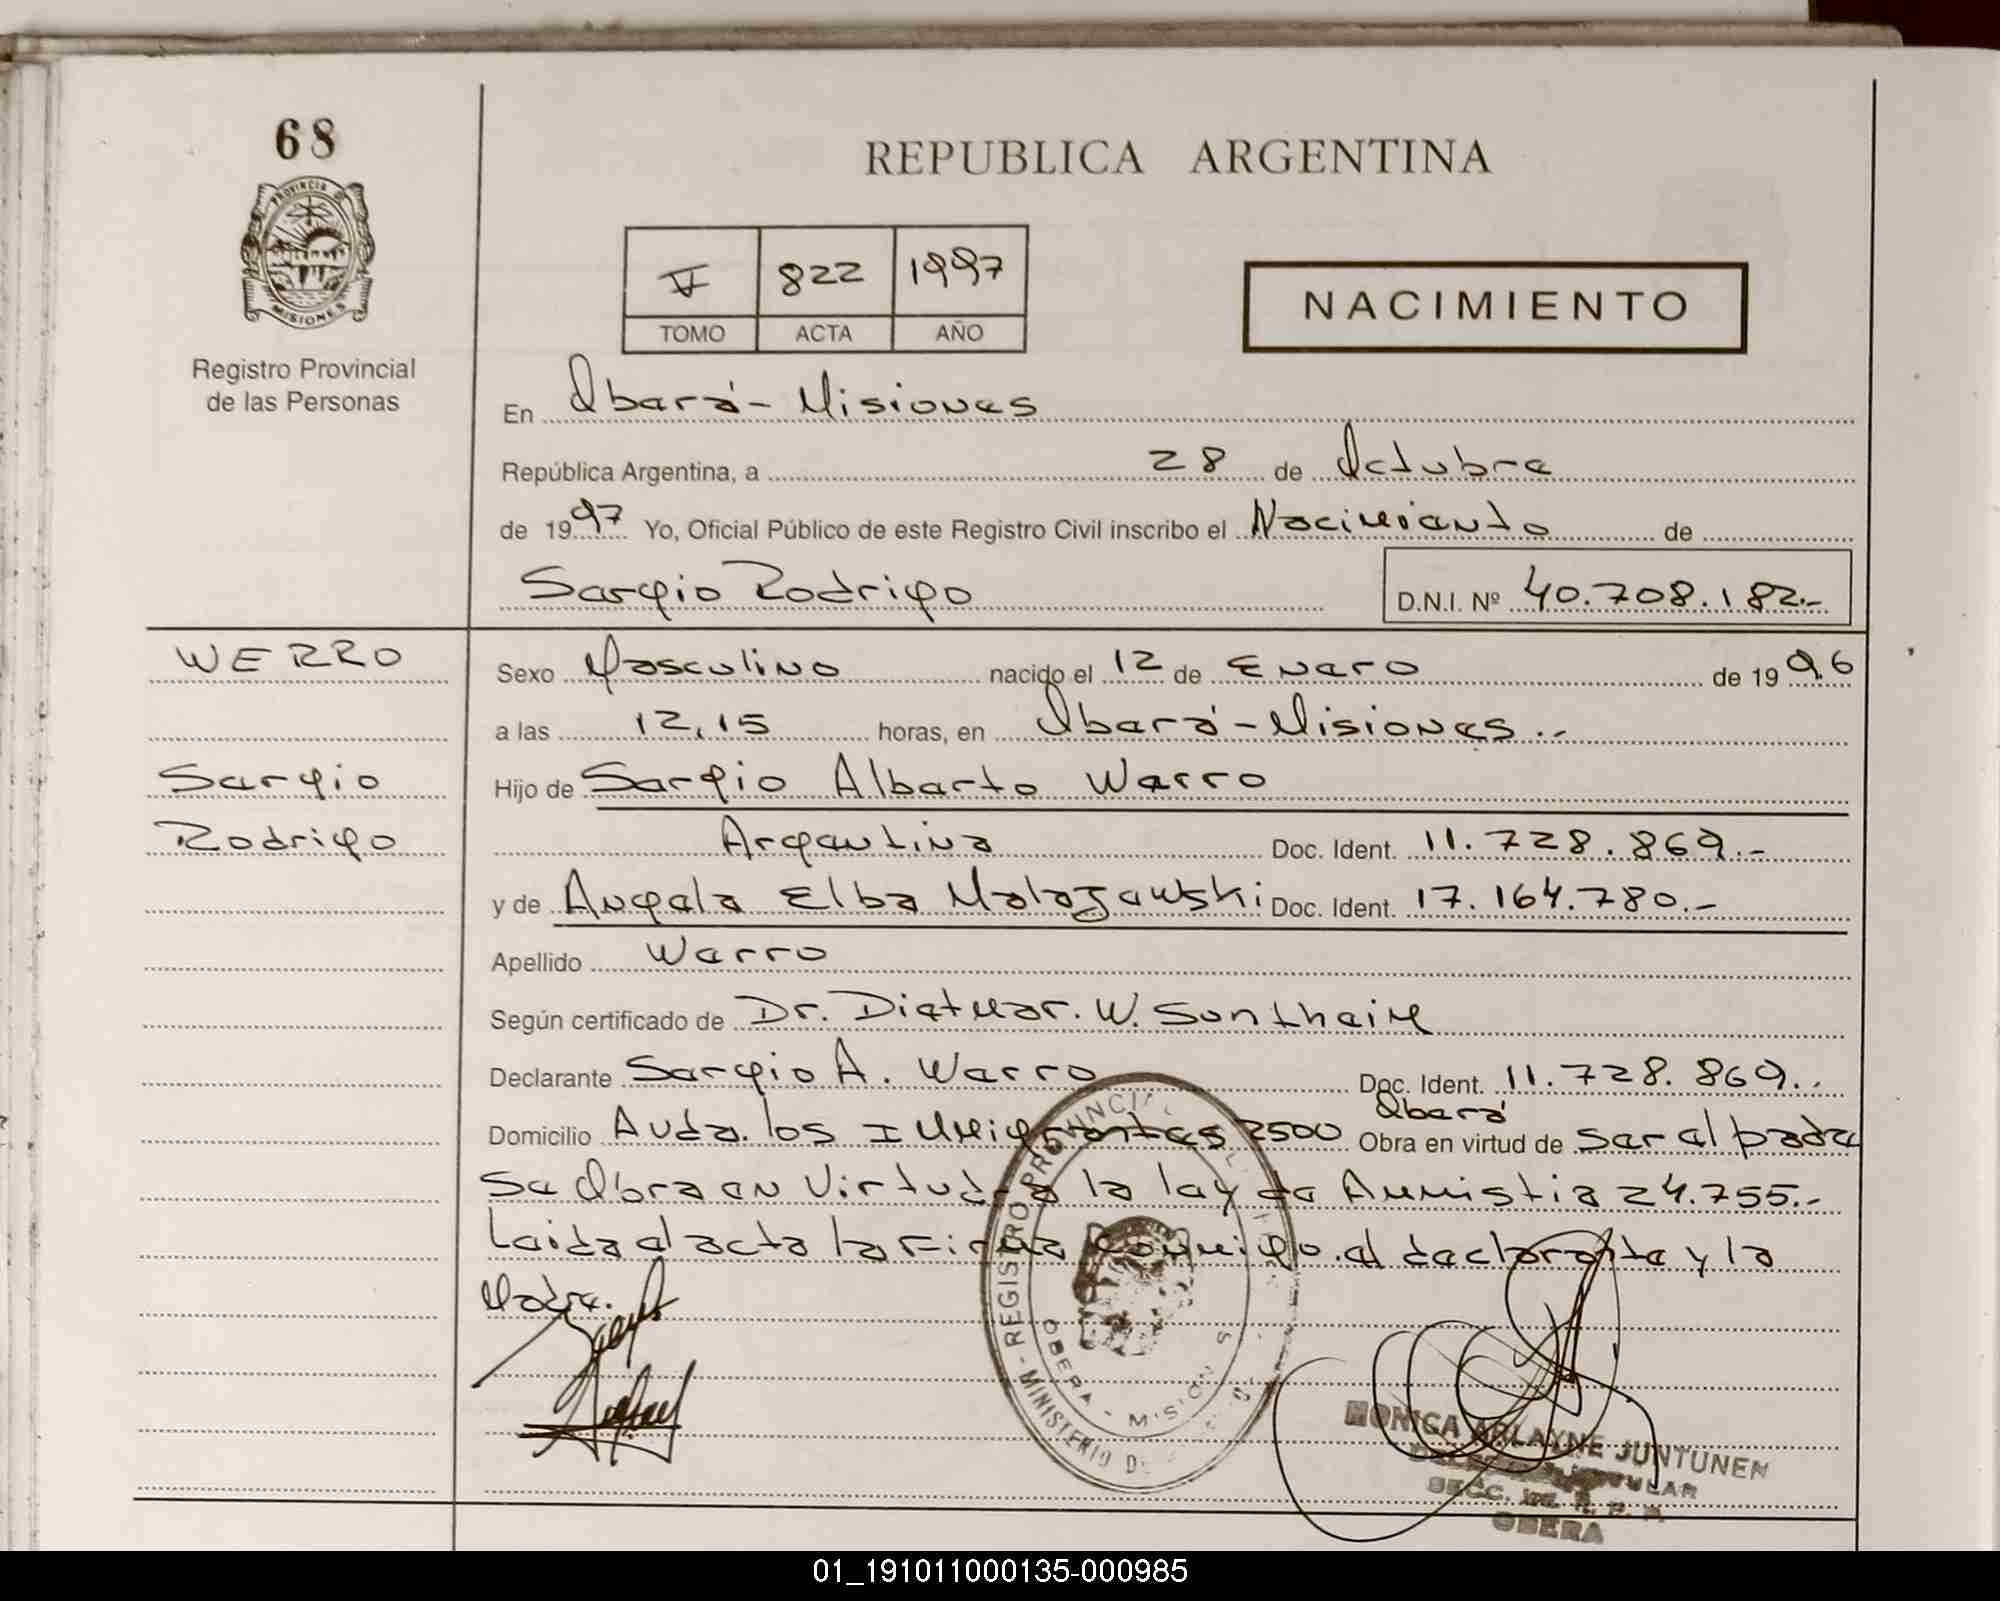 68
PROVINCIA DE
MISIONES
Registro Provincial
de las Personas
REPUBLICA ARGENTINA
V 822 1997
TOMO ACTA AÑO
NACIMIENTO
En Oberá - Misiones
República Argentina, a 28 de Octubre
de 1997 Yo, Oficial Público de este Registro Civil inscribo el Nacimiento de
Sergio Rodrigo D.N.I. Nº 40.708.182.-
WERRO
Sergio
Rodrigo
Sexo Masculino nacido el 12 de Enero de 1996
a las 12,15 horas, en Oberá - Misiones.-
Hijo de Sergio Alberto Werro
Argentina Doc. Ident. 11.728.869.-
y de Angela Elba Malazewski Doc. Ident. 17.164.780.-
Apellido Werro
Según certificado de Dr. Dietmar. W. Sontheim
Declarante Sergio A. Werro Doc. Ident. 11.728.869.-
Domicilio Avda. los Inmigrantes 2500 Oberá Obra en virtud de ser el padre
Se Obra en Virtud a la ley de Amnistia 24.755.-
Leida el acta la Firma conmigo el declarante y la
Madre.
REGISTRO PROVINCIAL
MINISTERIO DE
OBERA - MISIONES
MONICA ARLAYNE JUNTUNEN
SECC. R. P. P.
OBERA
01_191011000135-000985